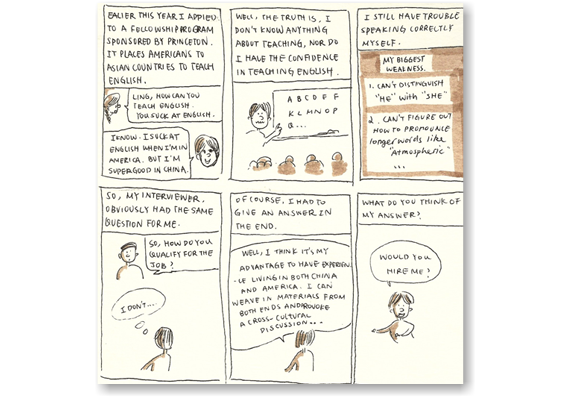 EALIER THIS YEAR I APPLIED
TO A FELLOWSHIP PROGRAM
SPONSORED BY PRINCETON.
IT PLACES AMERICANS TO
ASIAN COUNTRIES TO TEACH
ENGLISH.
LING, HOW CAN YOU
TEACH ENGLISH.
YOU SUCK AT ENGLISH.
I KNOW. I SUCK AT
ENGLISH WHEN I'M IN
AMERICA. BUT I'M
SUPER GOOD IN CHINA.
WELL, THE TRUTH IS, I
DON'T KNOW ANYTHING
ABOUT TEACHING, NOR DO
I HAVE THE CONFIDENCE
IN TEACHING ENGLISH.
A B C D E F
K L M N O P
Q ...
I STILL HAVE TROUBLE
SPEAKING CORRECTLY
MYSELF.
MY BIGGEST
WEAKNESS.
1. CAN'T DISTINGUISH
"HE" with "SHE"
2. CAN'T FIGURE OUT
HOW TO PRONOUNCE
longer words like
"Atmospheric"
...
SO, MY INTERVIEWER
OBVIOUSLY HAD THE SAME
QUESTION FOR ME.
SO, HOW DO YOU
QUALIFY FOR THE
JOB?
I DON'T...
OF COURSE, I HAD TO
GIVE AN ANSWER IN
THE END.
WELL, I THINK IT'S MY
ADVANTAGE TO HAVE EXPERIEN
-CE LIVING IN BOTH CHINA
AND AMERICA. I CAN
WEAVE IN MATERIALS FROM
BOTH ENDS AND PROVOKE
A CROSS-CULTURAL
DISCUSSION...
WHAT DO YOU THINK OF
MY ANSWER?
WOULD YOU
HIRE ME?